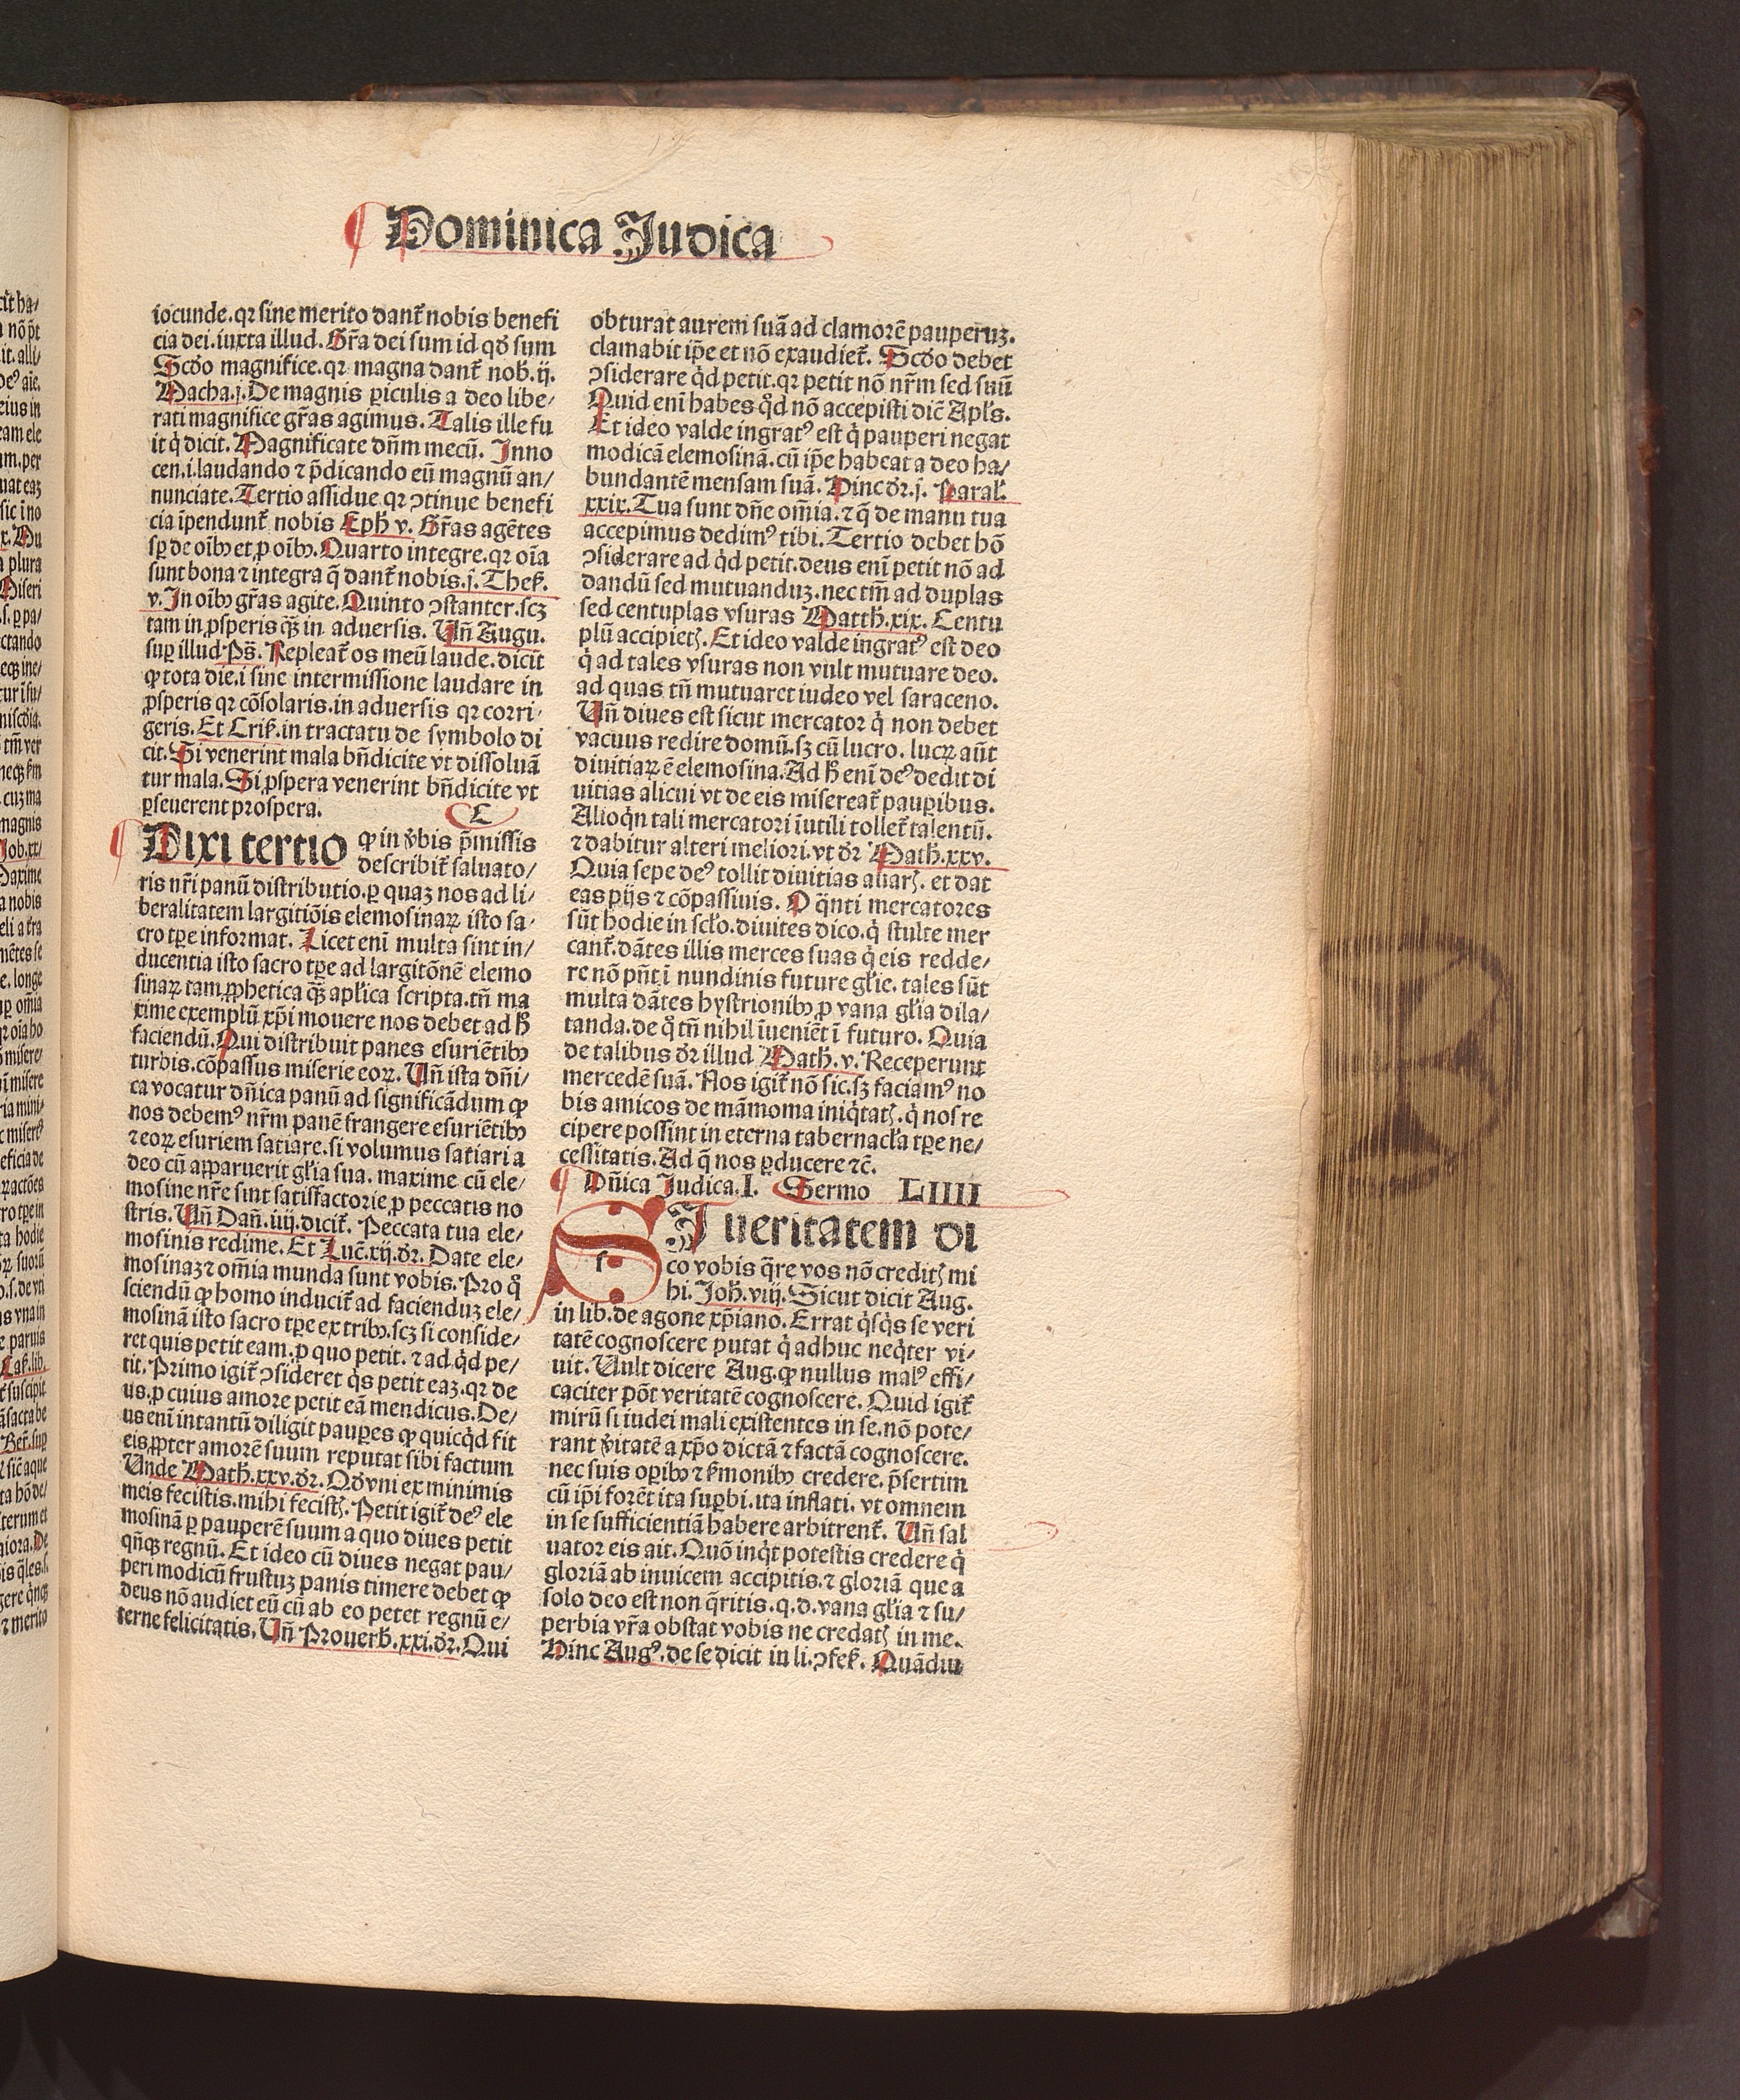 Dominica Judica
iocunde. qꝛ sine merito danť nobis benefi
cia dei. iuxta illud. Gr̃a dei sum id qď sum
Scďo magnifice. qꝛ magna danť nob̃. ij.
Macha. j. De magnis ꝑiculis a deo libe⸗
rati magnifice gr̃as agimus. Talis ille fu
it q̇ dicit. Magnificate dñm mecũ. Inno
cen. i. laudando ⁊ p̃dicando eũ magnũ an⸗
nunciate. Tertio assidue qꝛ ꝯtinue benefi
cia ĩpendunť nobis Eph̃ v. Gr̃as agẽtes
sꝑ de oĩbꝰ et ꝓ oĩbꝰ. Quarto integre. qꝛ oĩa
sunt bona ⁊ integra q̃ danť nobis. j. Theß.
v. In oĩbꝰ gr̃as agite. Quinto ꝯstanter. scꝫ
tam in ꝓsperis qꝫ̃ in aduersis. Uñ Augu.
suꝑ illud Ps̃. Repleať os meũ laude. dicit
ꝙ tota die. i sine intermissione laudare in
ꝓsperis qꝛ cõsolaris. in aduersis qꝛ corri⸗
geris. Et Criß. in tractatu de symbolo di
cit. Si venerint mala bñdicite vt dissoluã
tur mala. Si ꝓspera venerint bñdicite vt
ꝑseuerent prospera. C
Dixi tertio ꝙ in v̓bis p̃missis
describiť saluato⸗
ris nr̃i panũ distributio. ꝑ quaꝫ nos ad li⸗
beralitatem largitiõis elemosinaꝝ isto sa⸗
cro tꝑe informat. Licet eni multa sint in⸗
ducentia isto sacro tꝑe ad largitõnẽ elemo
sinaꝝ tam ꝓphetica qꝫ̃ apłica scripta. tñ ma
xime exemplũ xp̃i mouere nos debet ad h̃
faciendũ. Qui distribuit panes esuriẽtibꝰ
turbis. cõpassus miserie eoꝝ. Uñ ista dñi⸗
ca vocatur dñica panũ ad significãdum ꝙ
nos debemꝰ nr̃m panẽ frangere esuriẽtibꝰ
⁊ eoꝝ esuriem satiare. si volumus satiari a
deo cũ apparuerit głia sua. maxime cũ ele⸗
mosine nr̃e sint satisfactorie ꝓ peccatis no
stris. Uñ Dañ. iiij. diciť. Peccata tua ele⸗
mosinis redime. Et Luc̃. xij. dr̃. Date ele⸗
mosinaꝫ ⁊ om̃ia munda sunt vobis. Pro q̊
sciendũ ꝙ homo induciť ad faciendũ ele⸗
mosinã isto sacro tꝑe ex tribꝰ. scꝫ si conside⸗
ret quis petit eam. ꝓ quo petit. ⁊ ad q̇d pe⸗
tit. Primo igiť ꝯsideret q̇s petit eaꝫ. qꝛ de
us. ꝓ cuius amore petit eã mendicus. De⸗
us eni intantũ diligit pauꝑes ꝙ quicq̇d fit
eis ꝓpter amorẽ suum reputat sibi factum
Unde Math̃. xxv. dr̃. Qď vni ex minimis
meis fecistis. mihi fecistꝭ. Petit igiť deꝰ ele
mosinã ꝑ pauperẽ suum a quo diues petit
qñqꝫ regnũ. Et ideo cũ diues negat pau⸗
peri modicũ frustuꝫ panis timere debet ꝙ
deus nõ audiet eũ cũ ab eo petet regnũ e⸗
terne felicitatis. Uñ Prouerb̃. xxi. dr̃. Qui
obturat aurem suã ad clamorẽ pauperuꝫ.
clamabit ip̃e et nõ exaudieť. Scďo debet
ꝯsiderare q̇d petit. qꝛ petit nõ nr̃m sed suũ
Quid eni habes q̊d nõ accepisti dic̃ Apłs.
Et ideo valde ingratꝰ est q̇ pauperi negat
modicã elemosinã. cũ ip̃e habeat a deo ha⸗
bundantẽ mensam suã. Hinc dr̃. j. Parał.
xxix. Tua sunt dñe om̃ia. ⁊ q̃ de manu tua
accepimus dedimꝰ tibi. Tertio debet hõ
ꝯsiderare ad q̇d petit. deus eni petit nõ ad
dandũ sed mutuanduꝫ. nec tm̃ ad duplas
sed centuplas vsuras Matth̃. xix. Centu
plũ accipietꝭ. Et ideo valde ingratꝰ est deo
q̇ ad tales vsuras non vult mutuare deo.
ad quas tñ mutuaret iudeo vel saraceno.
Uñ diues est sicut mercator q̇ non debet
vacuus redire domũ. sꝫ cũ lucro. lucꝝ aũt
diuitiaꝝ ẽ elemosina. Ad h̃ eni deꝰ dedit di
uitias alicui vt de eis misereať pauꝑibus.
Alioq̇n tali mercatori ĩutili tolleť talentũ.
⁊ dabitur alteri meliori. vt dr̃ Math̃. xxv.
Quia sepe deꝰ tollit diuitias auarꝭ. et dat
eas pijs ⁊ cõpassiuis. O q̃nti mercatores
sũt hodie in scło. diuites dico. q̇ stulte mer
canť. dãtes illis merces suas q̇ eis redde⸗
re nõ pñt ĩ nundinis future głie. tales sũt
multa dãtes hystrionibꝰ ꝓ vana głia dila⸗
tanda. de q̊ tñ nihil ĩueniẽt ĩ futuro. Quia
de talibus dr̃ illud Math̃. v. Receperunt
mercedẽ suã. Nos igiť nõ sic. sꝫ faciamꝰ no
bis amicos de mãmoma iniq̇tatꝭ. q̇ nos re
cipere possint in eterna tabernacła tꝑe ne⸗
cessitatis. Ad q̃ nos ꝑducere ⁊c̃.
Dñica Judica. I. Sermo LIIII
SI ueritatem di
co vobis q̃re vos nõ creditꝭ mi
hi. Joh̃. viij. Sicut dicit Aug.
in lib. de agone xp̃iano. Errat q̇sq̇s se veri
tatẽ cognoscere putat q̇ adhuc neq̇ter vi⸗
uit. Uult dicere Aug. ꝙ nullus malꝰ effi⸗
caciter põt veritatẽ cognoscere. Quid igiť
mirũ si iudei mali existentes in se. nõ pote⸗
rant v̓itatẽ a xp̃o dictã ⁊ factã cognoscere.
nec suis oꝑibꝰ ⁊ ẜmonibꝰ credere. p̃sertim
cũ ip̃i forẽt ita suꝑbi. ita inflati. vt omnem
in se sufficientiã habere arbitrenť. Uñ sal
uator eis ait. Quõ inq̇t potestis credere q̇
gloriã ab inuicem accipitis. ⁊ gloriã que a
solo deo est non q̃ritis. q. d. vana głia ⁊ su⸗
perbia vr̃a obstat vobis ne credatꝭ in me.
Hinc Augꝰ. de se dicit in li. ꝯfeß. Quãdiu